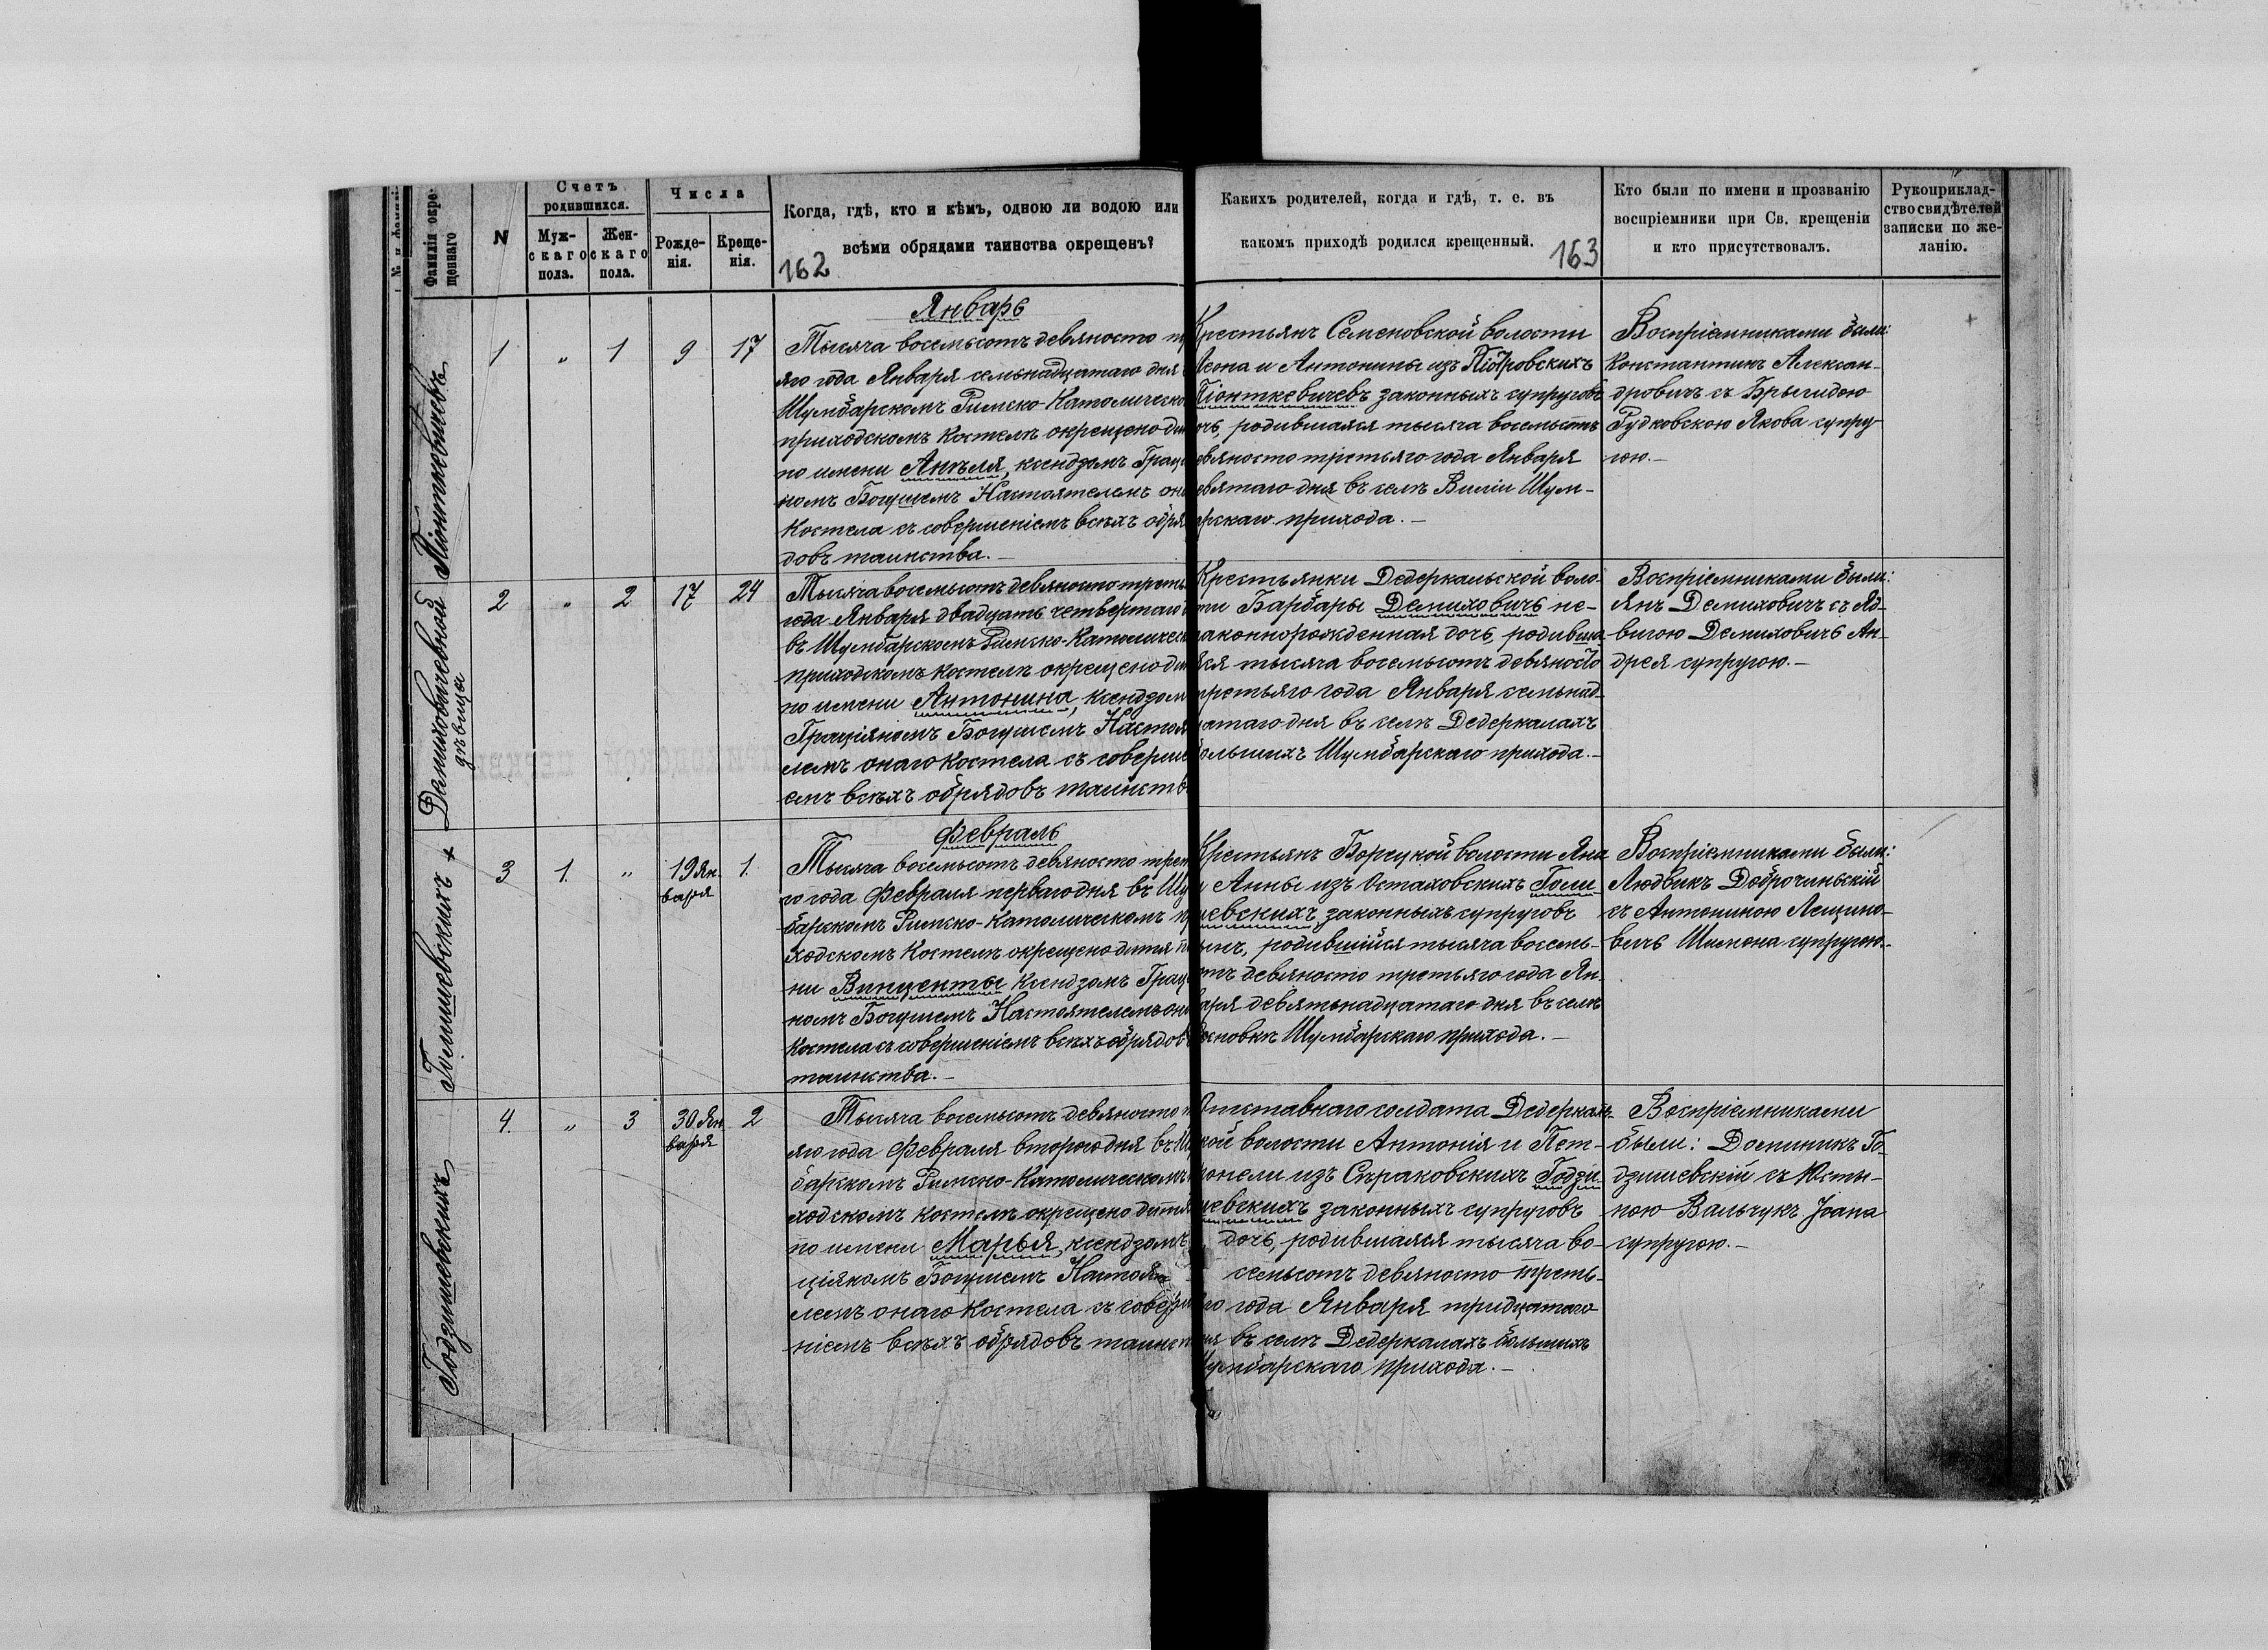 Фамилія окрещеннаго
N
Счетъ родившихся.
Мужскаго пола.
Женскаго пола.
Числа
Рожденія.
Крещенія.
Когда, гдѣ, кто и кѣмъ, одною ли водою или
всѣми обрядами таинства окрещенъ?
162
Какихъ родителей, когда и гдѣ, т. е. въ
какомъ приходѣ родился крещенный.
163
Кто были по имени и прозванію
воспріемники при Св. крещеніи
и кто присутствовалъ.
Рукоприклад-
ство свидѣтелей
записки по же-
ланію.
Піонткевичевъ
1 „ 1 9 17
Январь
Тысяча восемьсотъ девяносто
яго года Января семьнадцатаго дня
Шумбарскомъ Римско-Католическо
приходскомъ Костелѣ окрещено ди
по имени Анѣля, ксендзомъ Граці
номъ Богушемъ Настоятелемъ он
Костела съ совершеніемъ всѣхъ обря
довъ таинства.—
Крестьянъ Семеновской волости
Леона и Антонины изъ Піотровскихъ
Піонткевичевъ законныхъ супруговъ
очь, родившаяся тысяча восемьсотъ
евяносто третьяго года Января
евятаго дня въ селѣ Виліи Шум-
арскаго прихода.—
Воспріемниками были:
Константинъ Алексан-
дровичъ съ Брыгидою
Рудковскою Якова супру
гою.—
Демиховичевной
дѣвицы
2 „ 2 17 24
Тысяча восемьсотъ девяносто треть
года Января двадцать четвертаго
въ Шумбарскомъ Римско-Католическ
приходскомъ Костелѣ окрещено ди
по имени Антонина, ксендзом
Граціяномъ Богушемъ Настоя
лемъ онаго Костела съ соверше
емъ всѣхъ обрядовъ таинств
Крестьянки Дедеркальской воло-
ти Барбары Демиховичъ не-
аконнорожденная дочь, родивша
яся тысяча восемьсотъ девяносто
третьяго года Января семьнад-
цатаго дня въ селѣ Дедеркалахъ
большихъ Шумбарскаго прихода.—
Воспріемниками были:
Янъ Демиховичъ съ Яд-
вигою Демиховичъ Ан-
дрея супругою.—
Голишевскихъ +
3 1. „ 19 Ян-
варя 1.
Февраль
Тысяча восемьсотъ девяносто трет
го года Февраля перваго дня въ Шу
барскомъ Римско-Католическомъ п
ходскомъ Костелѣ окрещено дитя п
ни Винценты Ксендзомъ Граці
номъ Богушемъ Настоятелемъ он
Костела съ совершеніемъ всѣхъ обрядов
таинства.—
Крестьянъ Борецкой волости Яна
и Анны изъ Остаховскихъ Голи-
шевскихъ законныхъ супруговъ
ынъ, родившійся тысяча восемь-
отъ девяносто третьяго года Ян-
варя девятьнадцатаго дня въ селѣ
основкѣ Шумбарскаго прихода.—
Воспріемниками были:
Людвикъ Доброчиньскій
съ Антониною Лещино-
вичъ Шимона супругою.
Годзишевскихъ
4. „ 3 30 Ян-
варя 2
Тысяча восемьсотъ девяносто
яго года Февраля второго дня въ Ш
барскомъ Римско-Католическомъ
ходскомъ Костелѣ окрещено дитя
по имени Марья, ксендзомъ
ціяномъ Богушемъ Настоят
лемъ онаго Костела съ соверш
ніемъ всѣхъ обрядовъ таинст
Отставнаго солдата Дедеркаль-
кой волости Антонія и Пет-
ронели изъ Сѣраковскихъ Годзи-
шевскихъ законныхъ супруговъ
дочь, родившаяся тысяча во-
семьсотъ девяносто треть-
го года Января тридцатаго
ня въ селѣ Дедеркалахъ большихъ
Шумбарскаго прихода.—
Воспріемниками
были: Доминикъ Го-
дзишевскій съ Юсты-
ною Вальчукъ Іоана
супругою.—